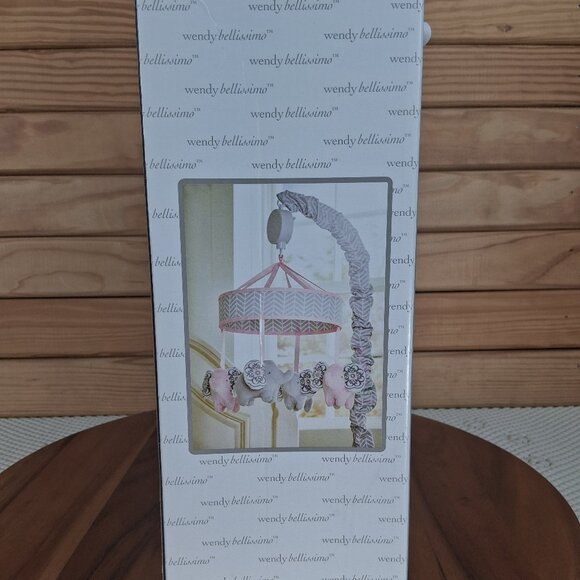 wendy bellissimo™ wendy bellissimo™
bellissimo™ wendy bellissimo™
wendy bellissimo™ wendy bellissimo™
bellissimo™ wendy bellissimo™
wendy bellissimo™ wendy bellissimo™
bellissimo™ wendy bellissimo™
wendy bellissimo™ wendy bellissimo™
wendy bellissimo™ wendy bellissimo™
bellissimo™ wendy bellissimo™
wendy bellissimo™ wendy bellissimo™
bellissimo™ wendy bellissimo™
wendy bellissimo™ wendy bellissimo™
bellissimo™ wendy bellissimo™